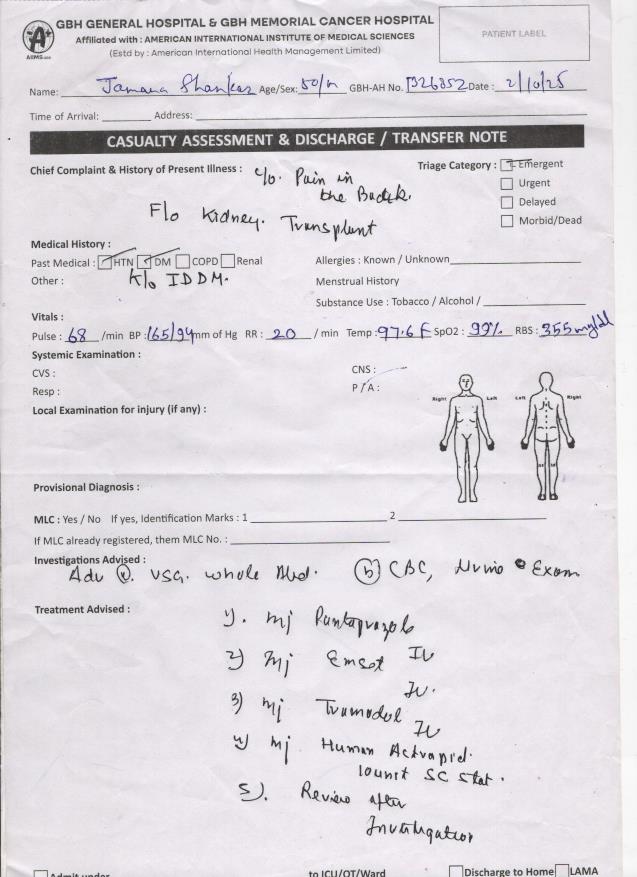 GBH GENERAL HOSPITAL & GBH MEMORIAL CANCER HOSPITAL
Affiliated with : AMERICAN INTERNATIONAL INSTITUTE OF MEDICAL SCIENCES
(Estd by : American International Health Management Limited)
PATIENT LABEL
Name: Jamana Shankar Age/Sex: 50/m GBH-AH No. Date : 2/10/25
Time of Arrival: Address:
CASUALTY ASSESSMENT & DISCHARGE / TRANSFER NOTE
Chief Complaint & History of Present Illness : c/o. Pain in Triage Category : Emergent
the Back.
Urgent
F/o Kidney. Transplant
Delayed
Morbid/Dead
Medical History :
Past Medical : HTN DM COPD Renal Allergies : Known / Unknown
Other : K/o IDDM. Menstrual History
Substance Use : Tobacco / Alcohol /
Vitals :
Pulse : 68 /min BP : 165/94 mm of Hg RR : 20 / min Temp : 97.6 F SpO2 : 99% RBS : 355 mg/dl
Systemic Examination :
CVS : CNS :
Resp : P / A :
Local Examination for injury (if any) :
Right Left Left Right
Provisional Diagnosis :
MLC : Yes / No If yes, Identification Marks : 1 2
If MLC already registered, them MLC No. :
Investigations Advised :
Adv (a). USG. whole Abd. (b) CBC, Exam
Treatment Advised :
1). inj Pantaprazole
IV
2) inj Emset
IV.
3) inj Tramadol
IV
4) inj Human Actrapid.
10unit SC stat.
5). Review after
Investigation
Admit under to ICU/OT/Ward Discharge to Home LAMA